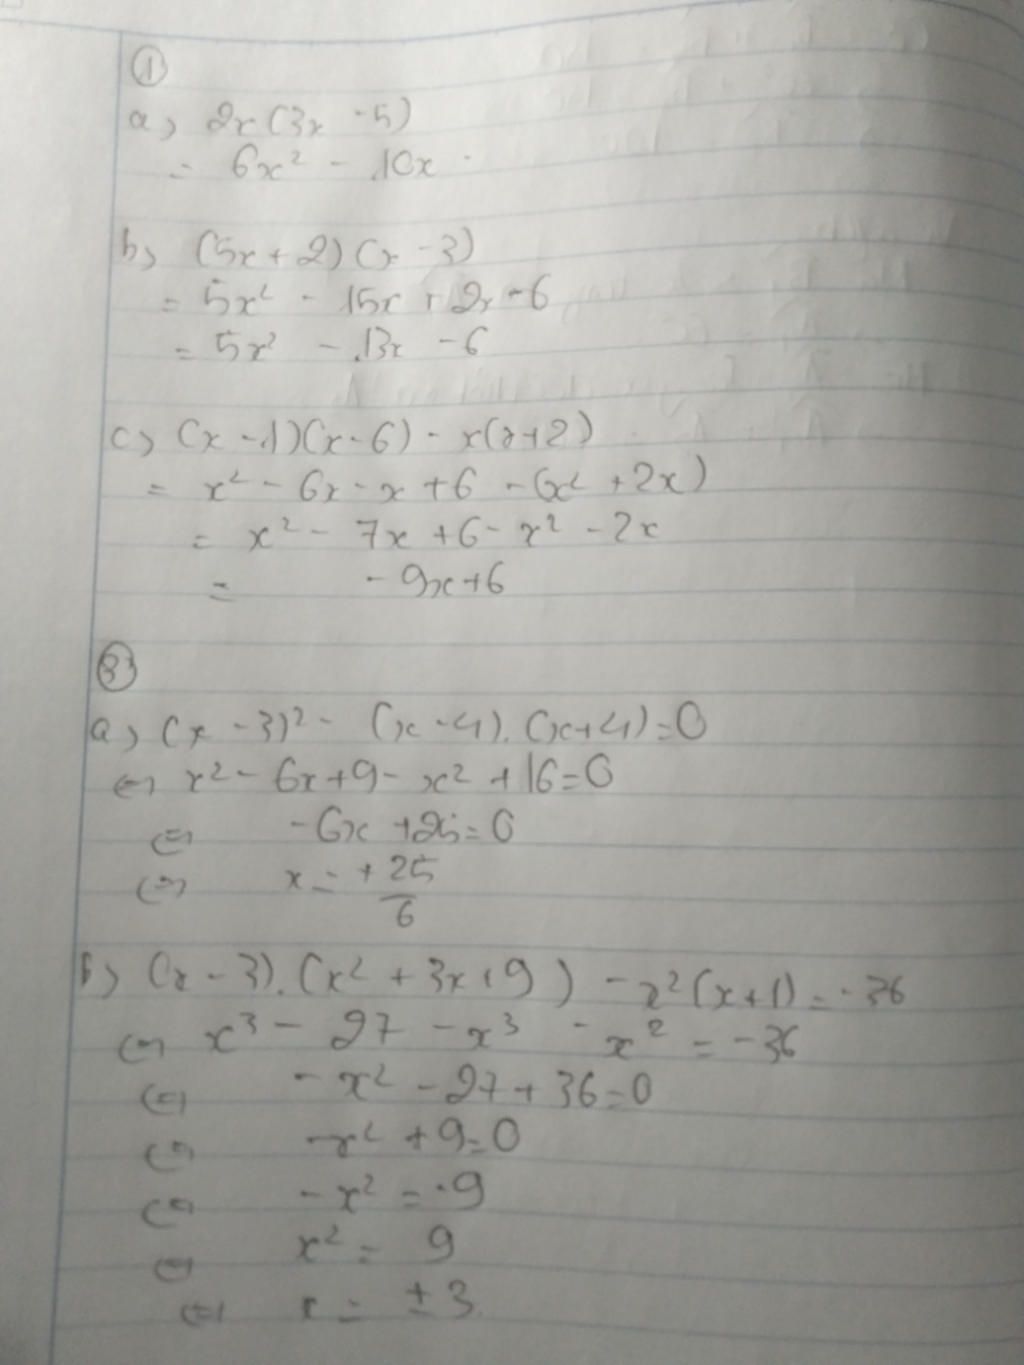 ①
a) 2x(3x - 5)
= 6x² - 10x
b) (5x + 2)(x - 3)
= 5x² - 15x + 2x - 6
= 5x² - 13x - 6
c) (x - 1)(x - 6) - x(x + 2)
= x² - 6x - x + 6 - (x² + 2x)
= x² - 7x + 6 - x² - 2x
= - 9x + 6
③
a) (x - 3)² - (x - 4).(x + 4) = 0
⇔ x² - 6x + 9 - x² + 16 = 0
⇔ - 6x + 25 = 0
⇔ x = + 25/6
b) (x - 3).(x² + 3x + 9) - x²(x + 1) = - 36
⇔ x³ - 27 - x³ - x² = - 36
⇔ - x² - 27 + 36 = 0
⇔ - x² + 9 = 0
⇔ - x² = - 9
⇔ x² = 9
⇔ x = ± 3